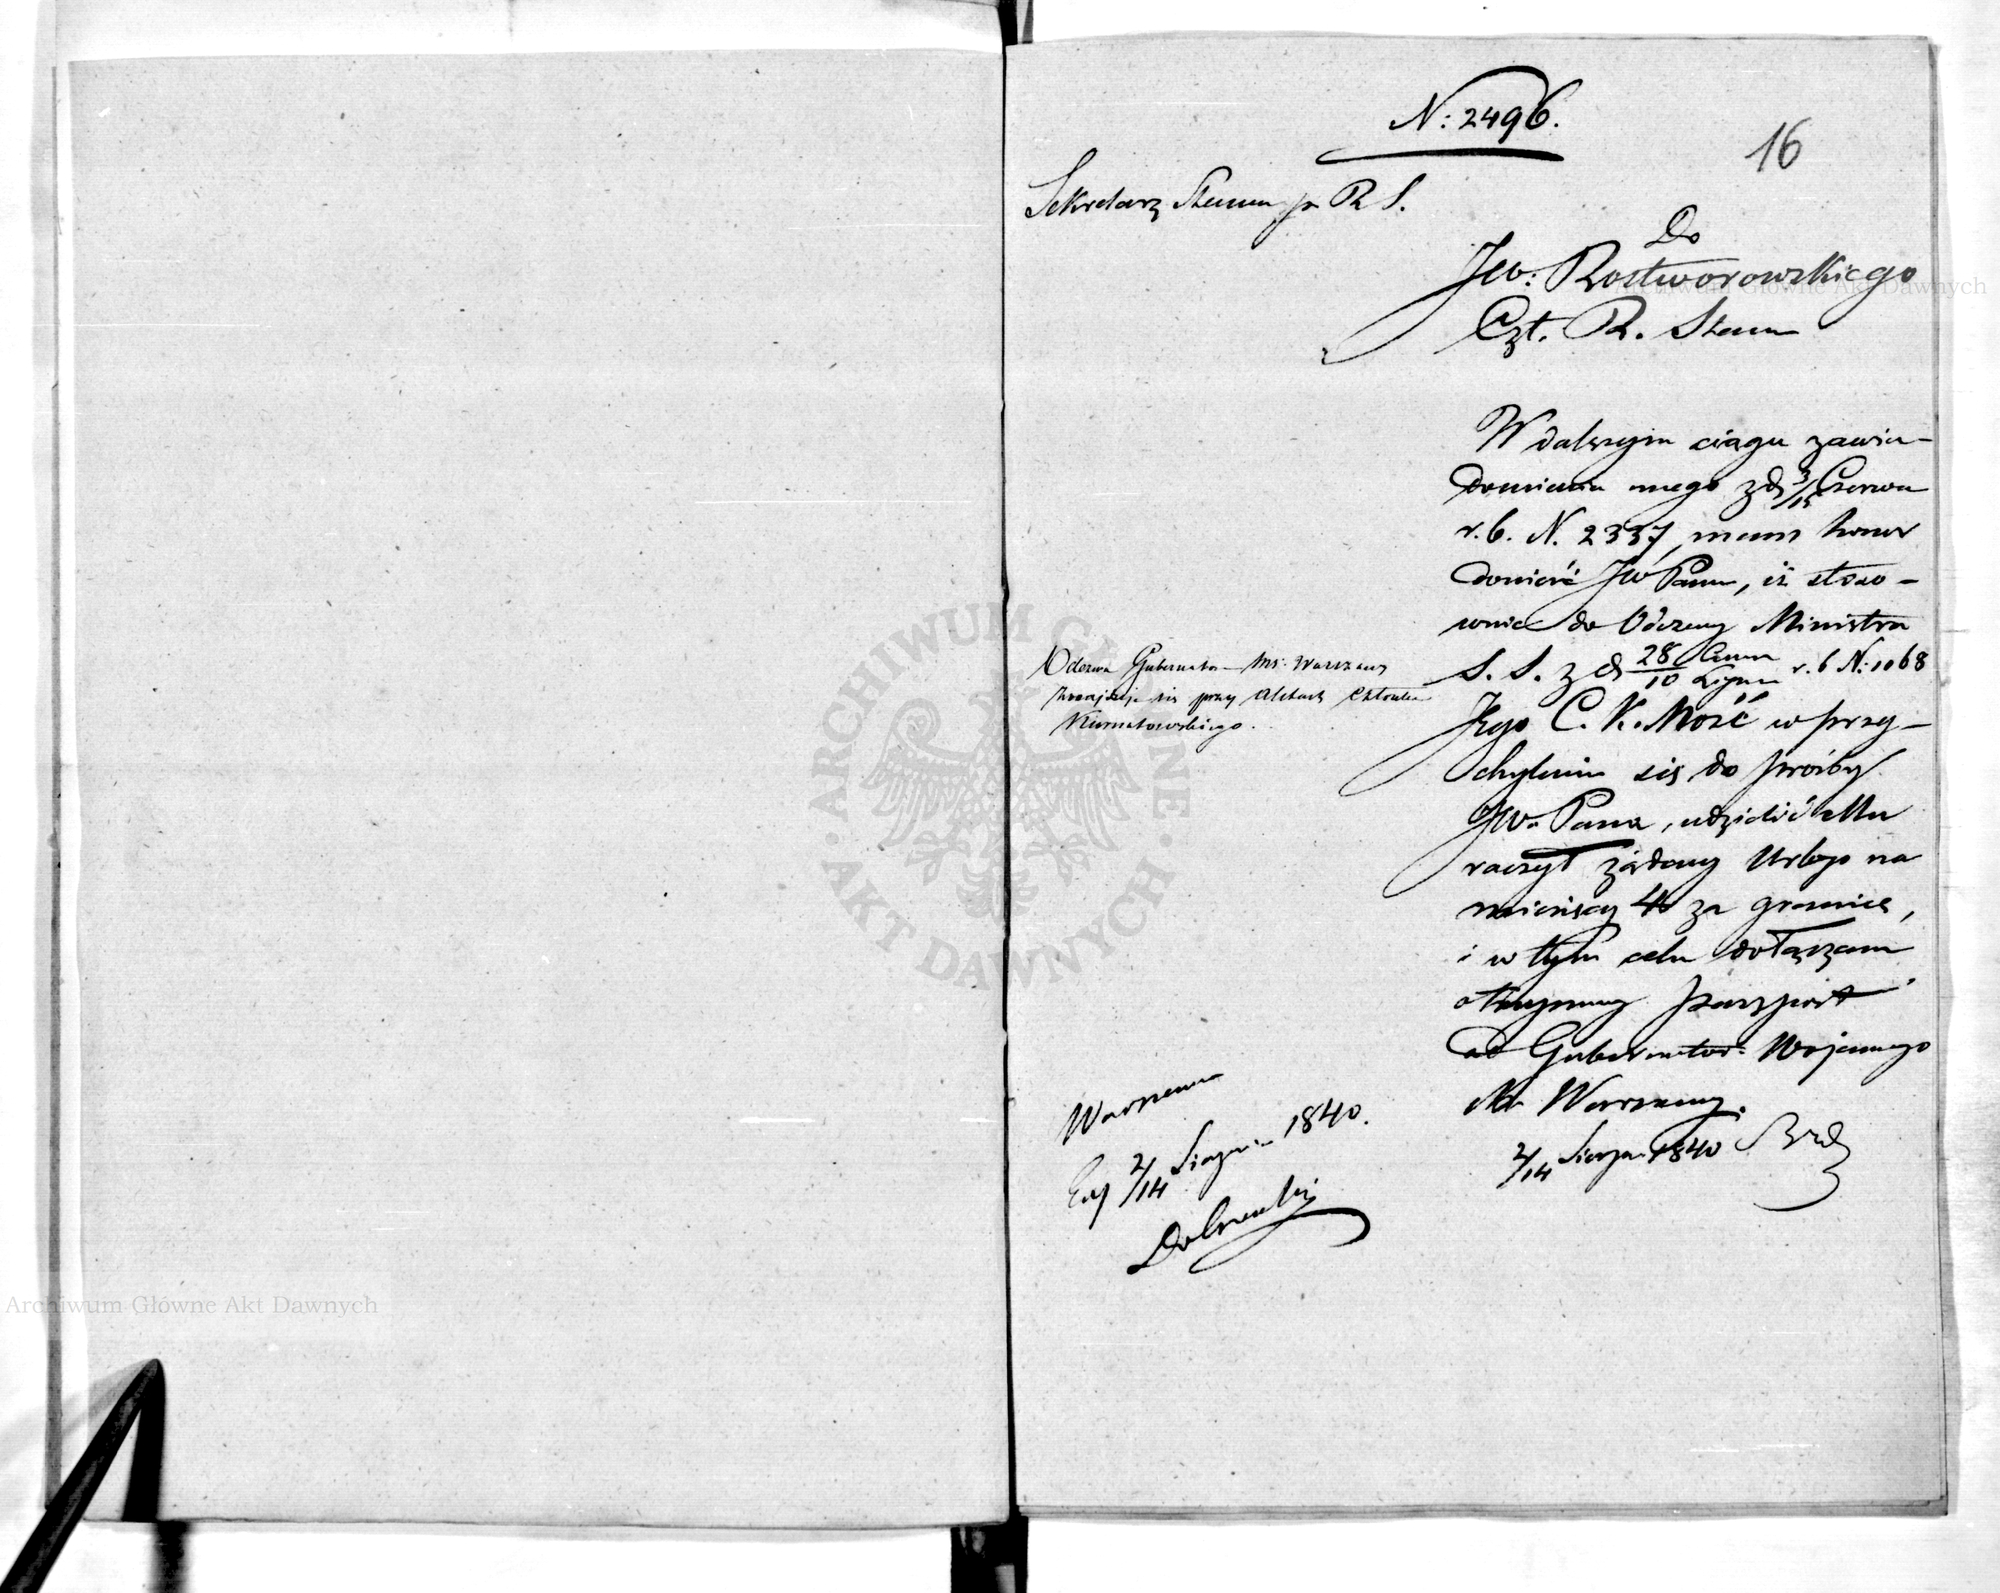 N: 2496.
16
Sekretarz Stanu przy R S.
Do
JW: Rostworowskiego
Czł. R. Stanu
W dalszym ciągu zawia-
domienia mego z d 3/15 Czerwca
r. b. N. 2337, mam honor
donieść JW Panu, iż stoso-
wnie do Odezwy Ministra
S. S. z d 28/10 Czerwca/Lipca r. b N: 1068
Jego C. K. Mość w przy-
chyleniu się do prośby
JW. Pana, udzielić Mu
raczył żądany Urlop na
miesięcy 4 za granicę,
i w tym celu dołączam
otrzymany paszport
od Gubernator: Wojennego
M. Warszawy.
2/14 Sierpn 1840
Odezwa Gubernatora Ms: Warszawy
znajduje się przy Aktach Członka
Kurnatowskiego.
Warszawa
2/14 Sierpnia 1840.
ARCHIWUM GŁÓWNE
AKT DAWNYCH
Archiwum Główne Akt Dawnych
Archiwum Główne Akt Dawnych